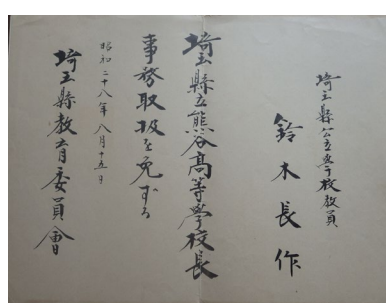 埼玉縣公立学校教員
鈴木長作
埼玉縣立熊谷髙等學校長
事務取扱を免ずる
昭和二十八年八月十五日
埼玉縣教育委員會